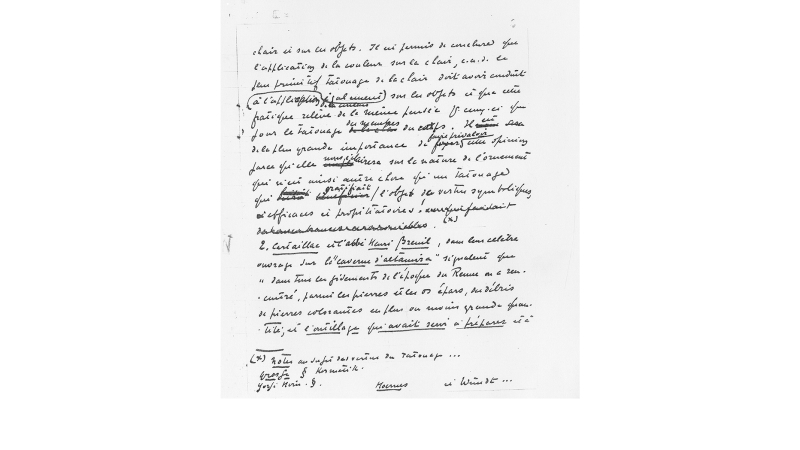 chair et sur les objets. Il est permis de conclure que
l'application de la couleur sur la chair, c.a.d. le
primitif tatouage de la chair doit avoir conduit
à l'application également sur les objets et que cette
pratique relève de la même pensée que
pour le tatouage des membres du corps. Il sera
de la plus grande importance de faire prévaloir cette opinion
parce qu'elle nous éclairera sur la nature de l'ornement
qui n'est ainsi autre chose qu'un tatouage
qui gratifiait l'objet des vertus symboliques
efficaces et propitiatoires. (x)
2. Cartailhac et l'abbé Henri Breuil, dans leur célèbre
ouvrage sur la "caverne d'altamira" signalent que
"dans tous les gisements de l'époque du Renne on a ren-
contré, parmi les pierres et les os épars, des débris
de pierres colorantes en plus ou moins grande quan-
tité, et l'outillage qui avait servi à préparer et à
(x) notes au sujet des vertus du tatouage ...
Grosse § Kosmetik.
Yrjö Hirn. §. Hoernes et Wundt ...